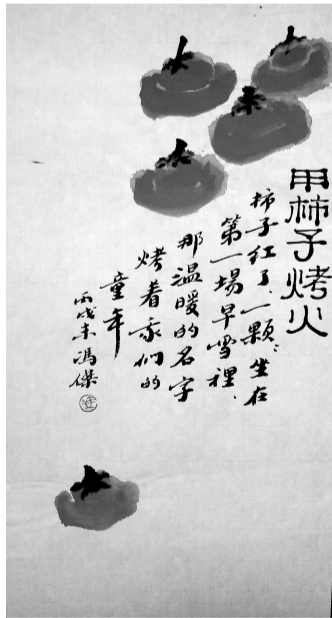 用柿子烤火
柿子红了.一颗:坐在
第一場早雪裡.
那温暖的名字
烤着我们的
童年
丙戌末冯傑